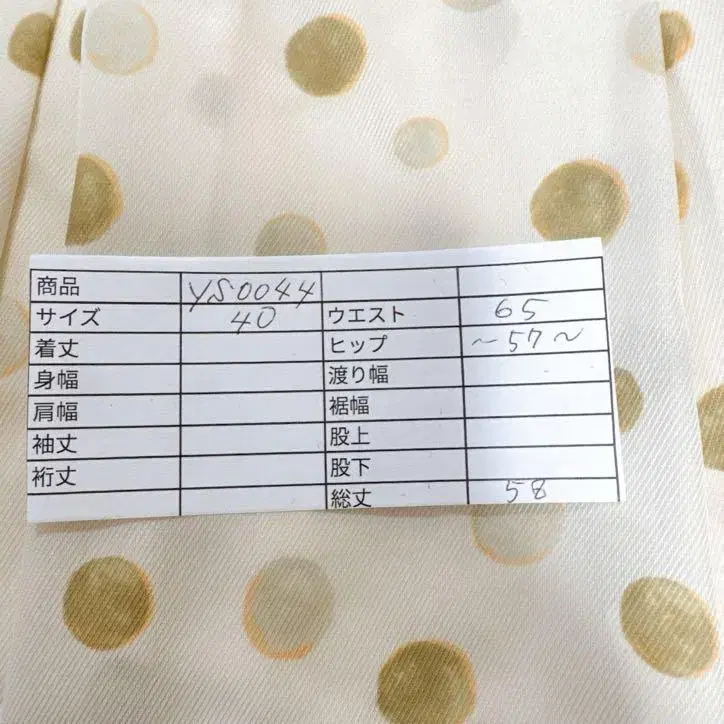 商品 YS0044
サイズ 40 ウエスト 65
着丈 ヒップ ~57~
身幅 渡り幅
肩幅 裾幅
袖丈 股上
裄丈 股下
総丈 58